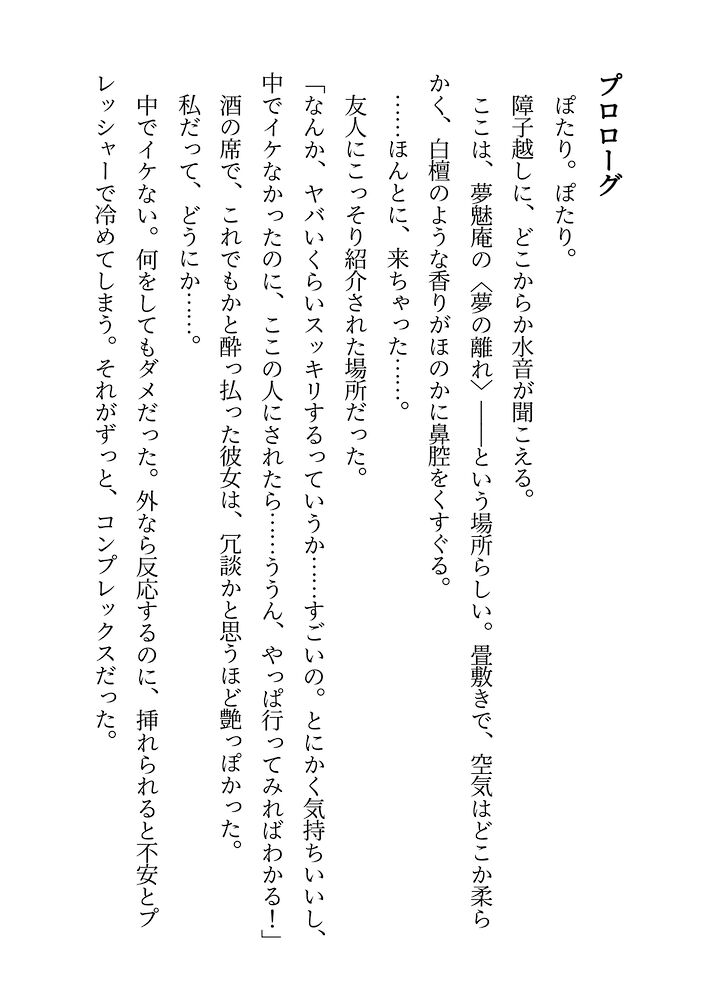 プロローグ
ぽたり。ぽたり。
障子越しに、どこからか水音が聞こえる。
ここは、夢魅庵の〈夢の離れ〉――という場所らしい。畳敷きで、空気はどこか柔ら
かく、白檀のような香りがほのかに鼻腔をくすぐる。
……ほんとに、来ちゃった……。
友人にこっそり紹介された場所だった。
「なんか、ヤバいくらいスッキリするっていうか……すごいの。とにかく気持ちいいし、
中でイケなかったのに、ここの人にされたら……ううん、やっぱ行ってみればわかる！」
酒の席で、これでもかと酔っ払った彼女は、冗談かと思うほど艶っぽかった。
私だって、どうにか……。
中でイケない。何をしてもダメだった。外なら反応するのに、挿れられると不安とプ
レッシャーで冷めてしまう。それがずっと、コンプレックスだった。